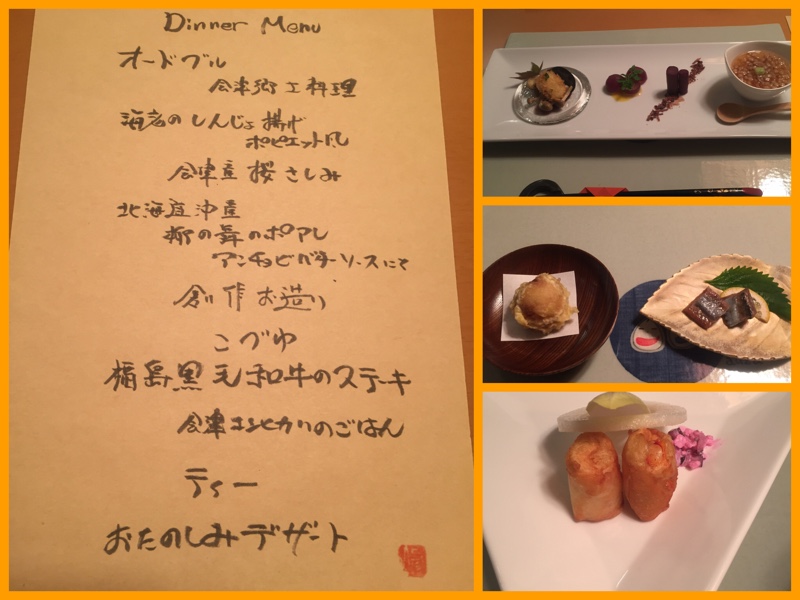 Dinner Menu
オードブル
会津郷土料理
海老のしんじょ揚げ
ポピエット風
会津産 桜さしみ
北海道沖産
柳の舞のポアレ
アンチョビバターソースにて
創作お造り
こづゆ
福島黒毛和牛のステーキ
会津コシヒカリのごはん
ティー
おたのしみデザート